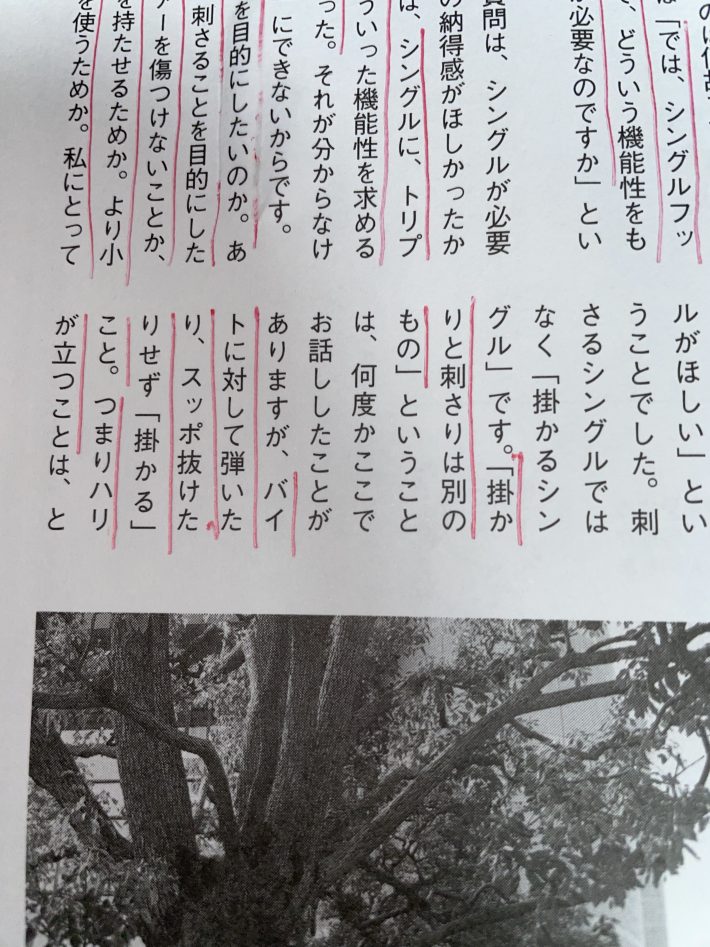 のは何故
は「では、シングルフッ
で、どういう機能性をも
が必要なのですか」とい
質問は、シングルが必要
の納得感がほしかったか
は、シングルに、トリプ
ういった機能性を求める
った。それが分からなけ
にできないからです。
を目的にしたいのか。あ
刺さることを目的にした
アーを傷つけないことか、
を持たせるためか。より小
を使うためか。私にとって
ルがほしい」とい
うことでした。刺
さるシングルでは
なく「掛かるシン
グル」です。「掛か
りと刺さりは別の
もの」ということ
は、何度かここで
お話ししたことが
ありますが、バイ
トに対して弾いた
り、スッポ抜けた
りせず「掛かる」
こと。つまりハリ
が立つことは、と